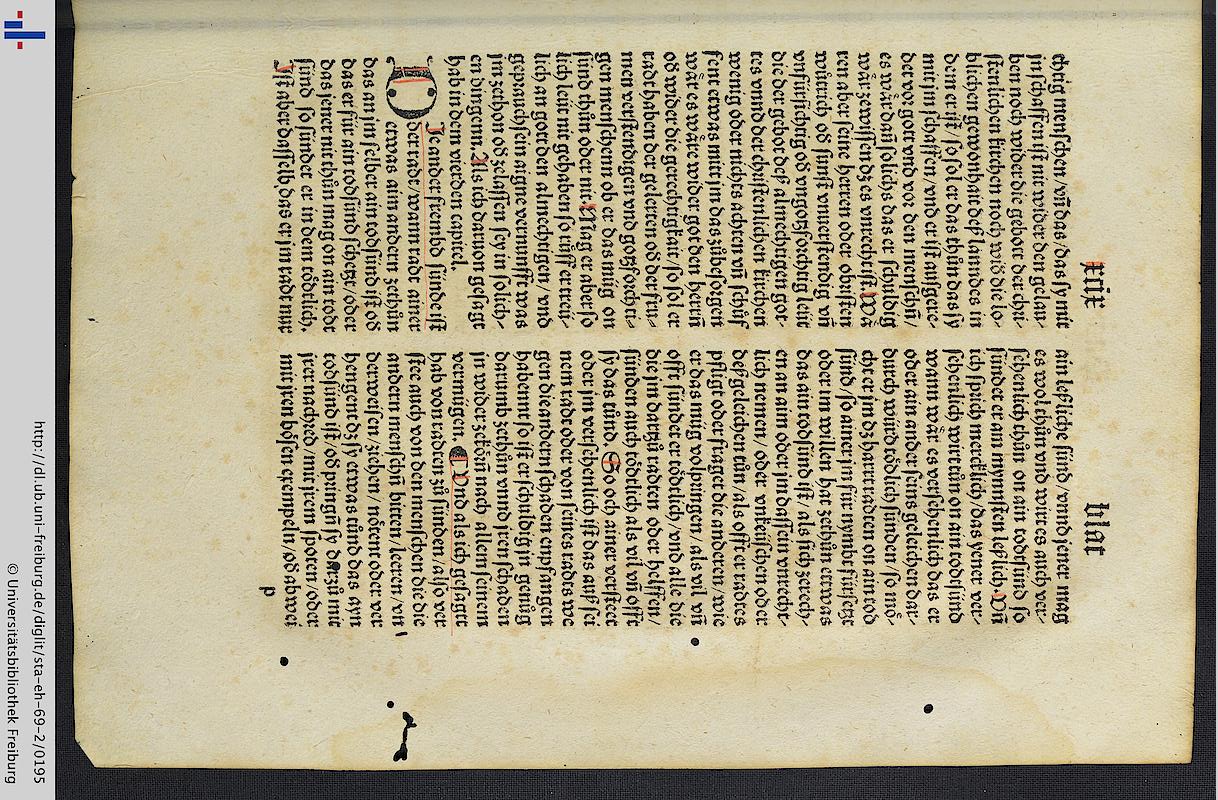 xix
blat
ebrig menschen vñ das / das sy mit
jn schaffen ist nit wider den gelau-
ben noch wider die gebott der chri-
stenlichen kirchen noch wid die lo-
blichen gewonhait deß lanndes in
dem er ist / so sol er das thůn das sy
mit jm schaffen / vnd er ist ausgere-
det vor gott vnd vor den menschñ /
es wår dañ solichs das er schuldig
wår zewissen dz es vnrecht ist Wå
ren aber seine herren oder obristen
wůtrich od sunst vnuerstendig vñ
vnfürsichtig od vngotzforchtig leüt
die der gebot deß almechtigen got-
tes vnnd der christenlichen kirchen
wenig oder nichts achten vñ schüf
fent etwas mitt jm das zübesorgen
wår es wåre wider got den herrñ
od wider die gerechtigkait / so sol er
radt haben der gelerten od der fru-
men verstendigen vnd gotzforchti-
gen menschenn ob er das müg on
sünd thůn oder nit. Mag er aber so
lich leüt nit gehaben so růff er treü-
lich an got den almechtigen / vnd
geprauch sein aigne vernunfft was
jm zethon od zelassen sey in solich-
en dingenn. Als ich daruon gesagt
hab in dem vierden capitel.
Die ander frembd sünde ist
der radt / wann radt ainer
etwas ain andern zethůn
das an jm selber ain todsünd ist od
das er für ain todsünd schetzt / oder
das jener nit thůn mag on ain todt
sünd so sündet er in dem tödtlich,
Ist aber dasselb das er jm radt nur
ain leßliche sünd / vnnd jener mag
es wol thůn vnd wirt es auch ver-
sehenlich thůn on ain todsünd so
sündet er am mynsten leßlich Vñ
ich sprich mercklich / das yener ver-
sehenlich wirt tůn on ain todsünd
wann wår es versehenlich das er
oder ain ander seins geleichen dar-
durch würd tödlich sünden / so mö-
cht er jm dz hart radten on ain tod
sünd / so ainer jm für nymbt fürsetzt
oder in willen hat zethůn etwas
das ain todsünd ist / als sich zerech-
en an aim oder jm das sein vnrecht-
lich nemen / oder vnkeüschen oder
deßgeleichen tůn / als offt er radtes
pfligt oder fraget die anderen / wie
er das müg volpringen / als vil vñ
offt sündet er tödtlich / vnd alle die
die jm dartzů radten oder helffen /
sünden auch tödtlich als vil vñ offt
sy das tůnd. So och ainer versteet
oder jm versehenlich ist das auß sei
nem radt oder von seines radts we
gen die andern schaden enpfangen
habennt so ist er schuldig jn genüg
darumb zethůn vnnd jren schaden
jn wider zekörn nach allem seinem
vermügen. Vnd als ich gesagt
hab von radten zů sünden / also ver
stee auch von den menschen die die
andern menschñ bitten / leeren / vñ
derweisen / ziehen / nöttent oder ver
hengent dz sy etwas tůnd das ayn
todsünd ist / od pringñ sy dartzů mit
jrer nachred / mit jrem spoten / oder
mit jren bösen exempeln / od abwei
p
http://dl.ub.uni-freiburg.de/diglit/sta-eh-69-2/0195
© Universitätsbibliothek Freiburg